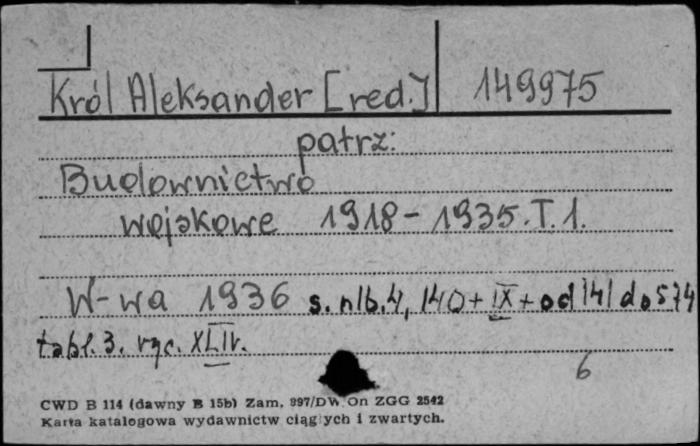 Król Aleksander [red.] 149975
patrz:
Budownictwo
wojskowe 1918-1935.T.1.
W-wa 1936 s. nlb. 4, 140 + IX + od 141 do 574
tabl. 3. ryc. XLIV.
6
CWD B 114 (dawny B 15b) Zam. 997/DW. On ZGG 2542
Karta katalogowa wydawnictw ciągłych i zwartych.